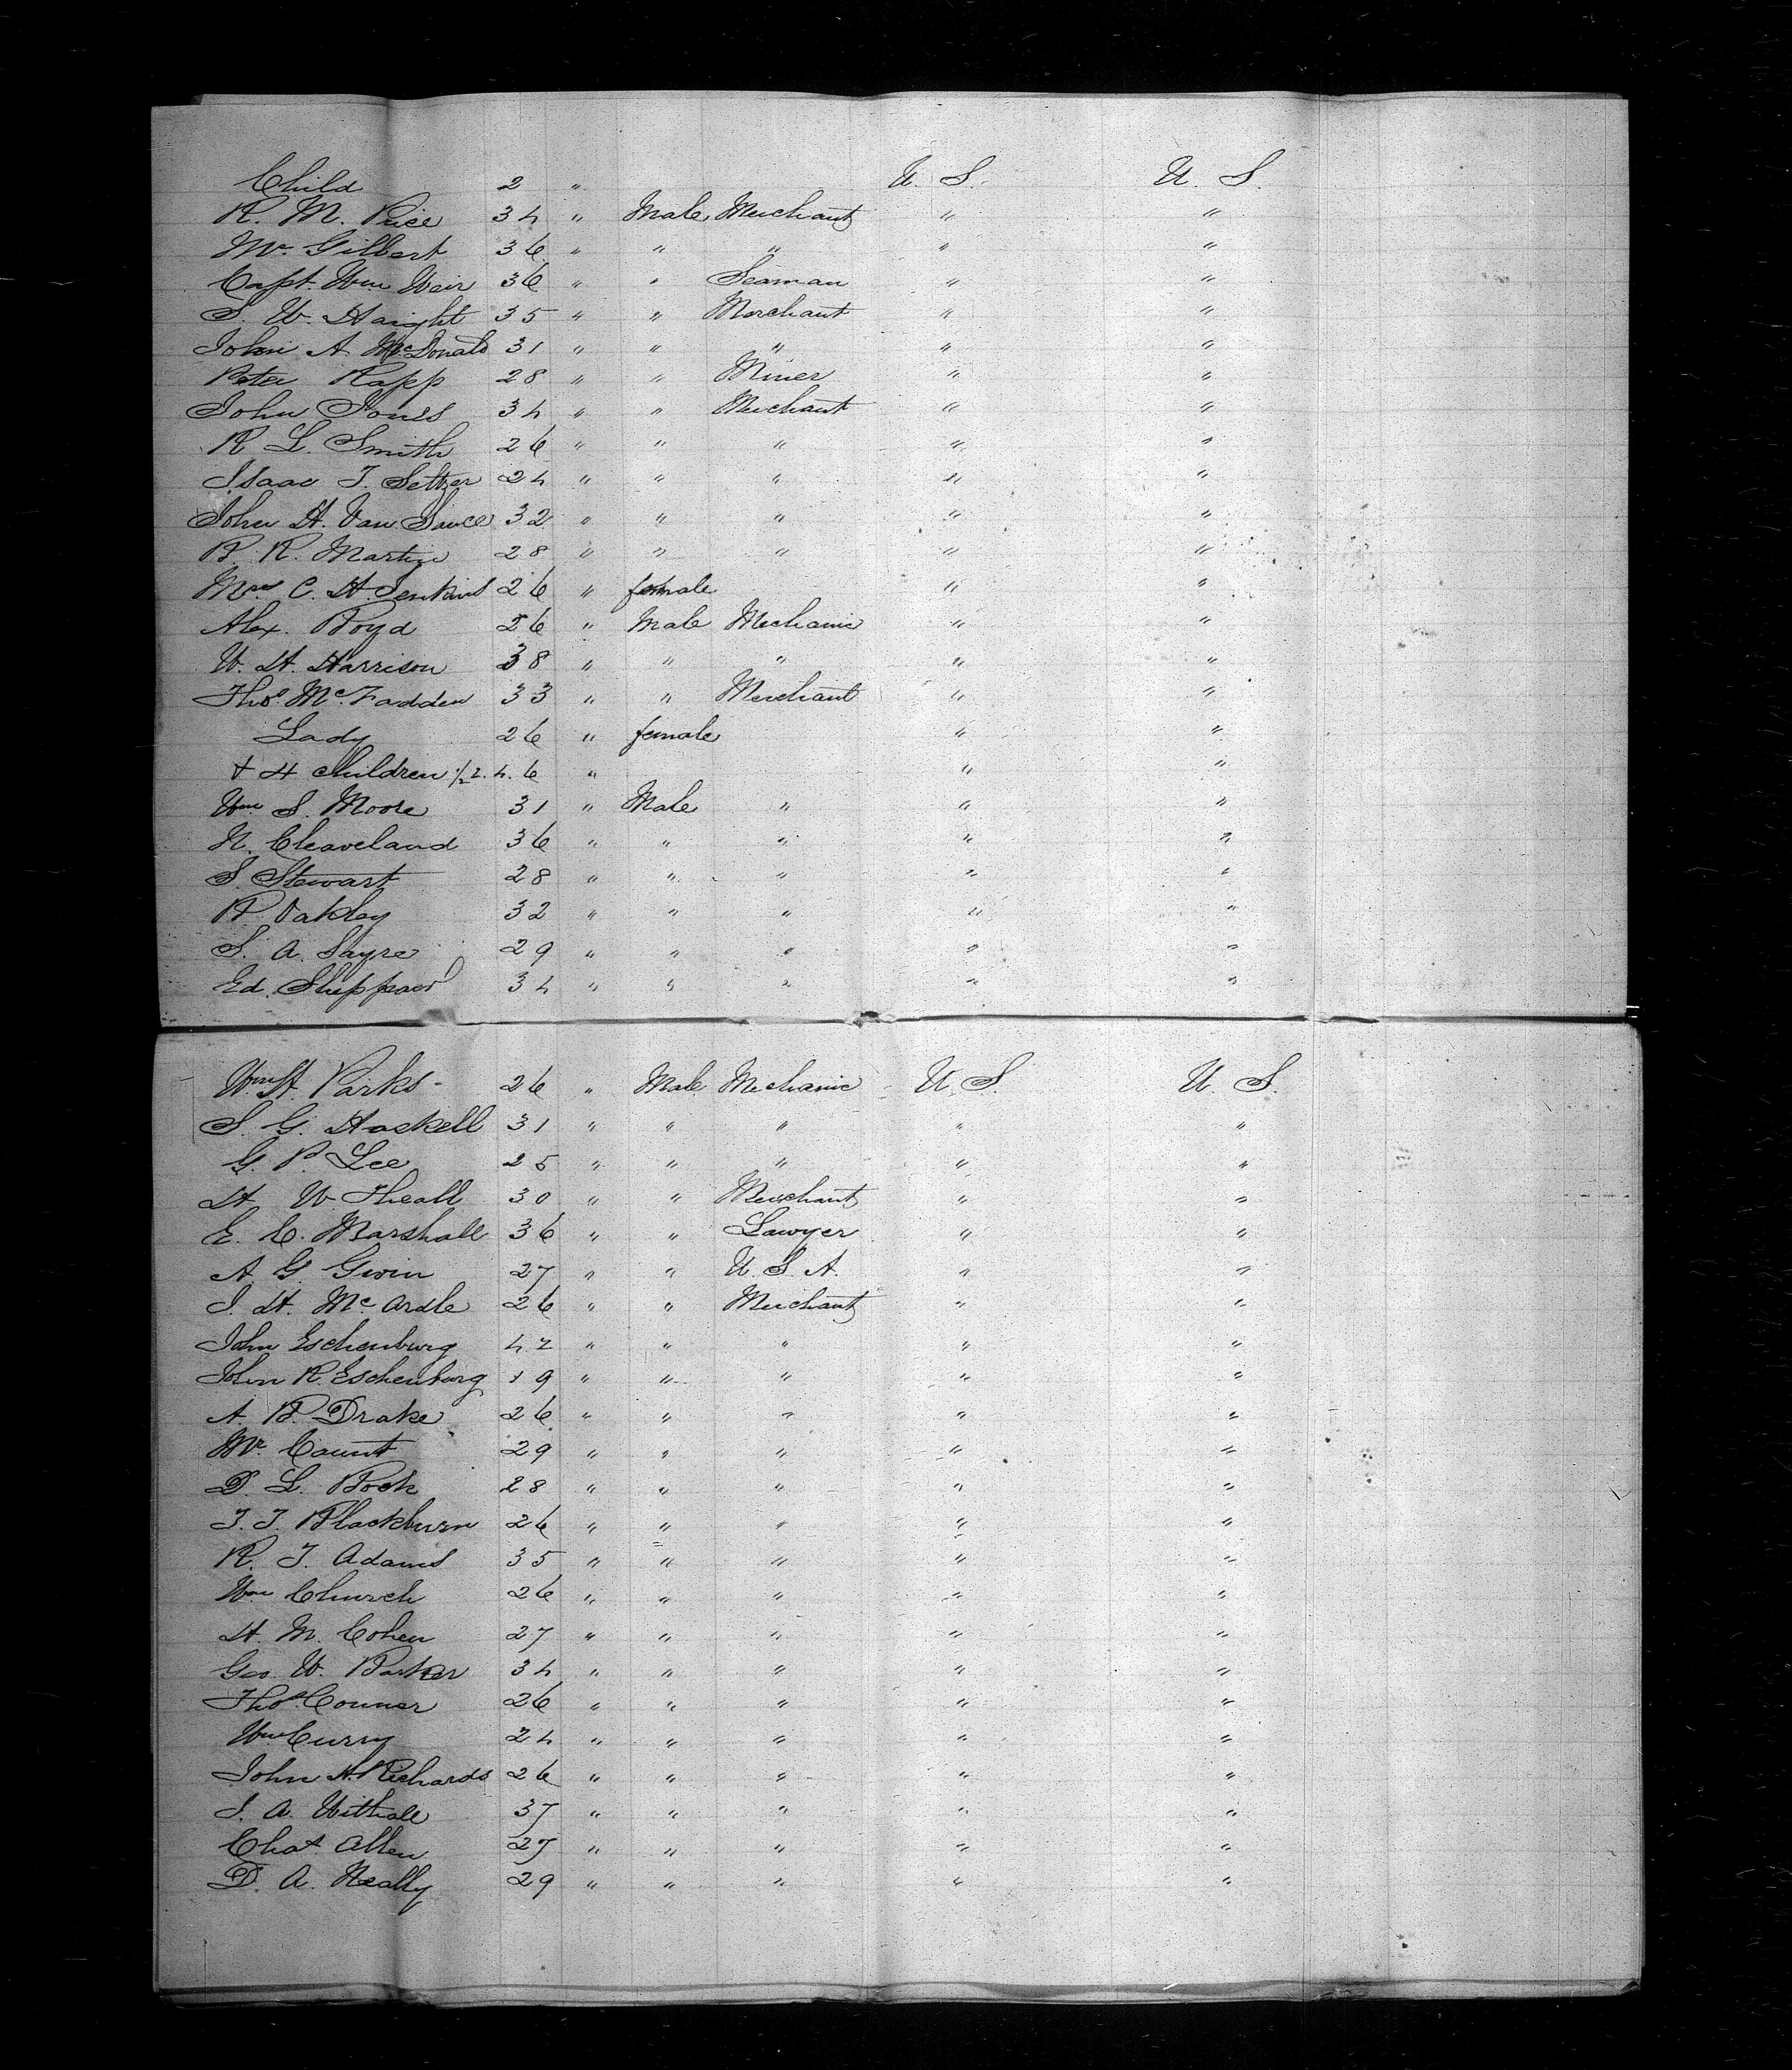 Child 2 " U. S. U. S.
R. M. Price 34 " Male Merchant " "
Mr. Gilbert 36 " " " " "
Capt. Wm Weir 36 " " Seaman " "
S. W. Haight 35 " " Merchant " "
John A McDonald 31 " " " " "
Peter Rapp 28 " " Miner " "
John Jones 34 " " Merchant " "
R L. Smith 26 " " " " "
Isaac T. Seltzer 24 " " " " "
John H. Van 32 " " " " "
B. R. Martin 28 " " " " "
Mrs C. H Jenkins 26 " female " "
Alex. Boyd 26 " Male Mechanic " "
W. H. Harrison 38 " " " " "
Thos. Mc.Fadden 33 " " Merchant " "
Lady 26 " female " "
+ 4 children 1/2 2. 4. 6 " " "
Wm S. Moore 31 " Male " " "
N. Cleaveland 36 " " " " "
S. Stewart 28 " " " " "
B. Oakley 32 " " " " "
S. A. Sayre 29 " " " " "
Ed. Sheppard 34 " " " " "
Wm H. Parks - 26 " Male Mechanic U. S. U. S.
S. G. Haskell 31 " " " " "
G. P. Lee 25 " " " " "
H. W. Theall 30 " " Merchant " "
E. C. Marshall 36 " " Lawyer " "
A. G. Gwin 27 " " U. S. A. " "
J. H. Mc Ardle 26 " " Merchant " "
John Eschenburg 42 " " " " "
John R. Eschenburg 19 " " " " "
A. B. Drake 26 " " " " "
Mr. Count 29 " " " " "
D. L. 28 " " " " "
J. J. Blackburn 26 " " " " "
R. J. Adams 35 " " " " "
Wm Church 26 " " " " "
H. M. Cohen 27 " " " " "
Geo. W. Barker 34 " " " " "
Thos. Conner 26 " " " " "
Wm Curry 24 " " " " "
John H. Richards 26 " " " " "
J. A. Withall 37 " " " " "
Chas Allen 27 " " " " "
D. A. Neally 29 " " " " "